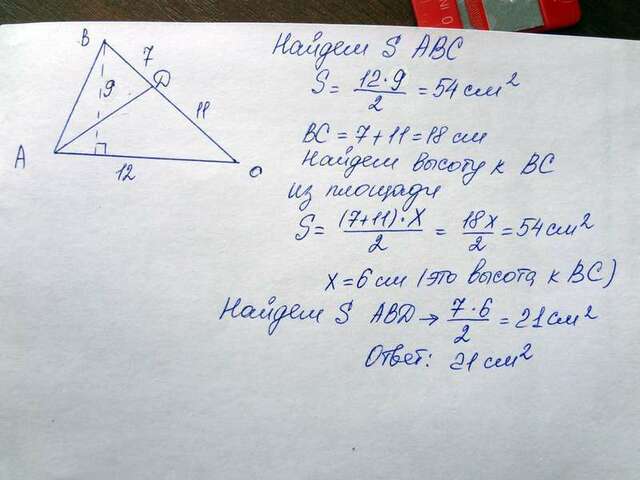 B
7
D
9
11
A
12
C
Найдем S ABC
S = 12·9/2 = 54 см²
BC = 7+11 = 18 см
Найдем высоту к BC
из площади
S = (7+11)·X/2 = 18X/2 = 54 см²
X = 6 см (это высота к BC)
Найдем S ABD → 7·6/2 = 21 см²
Ответ: 21 см²